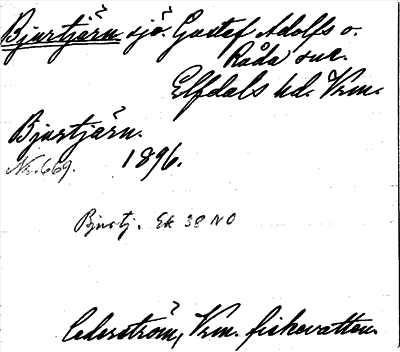 Bjurtjärn sjö. Gustaf Adolfs o.
Råda snr.
Elfdals hd. Vrm.
Bjurtjärn.
Nr. 669. 1896.
Bjurtj. Ek 38 NO
Cederström, Vrm. fiskevatten.